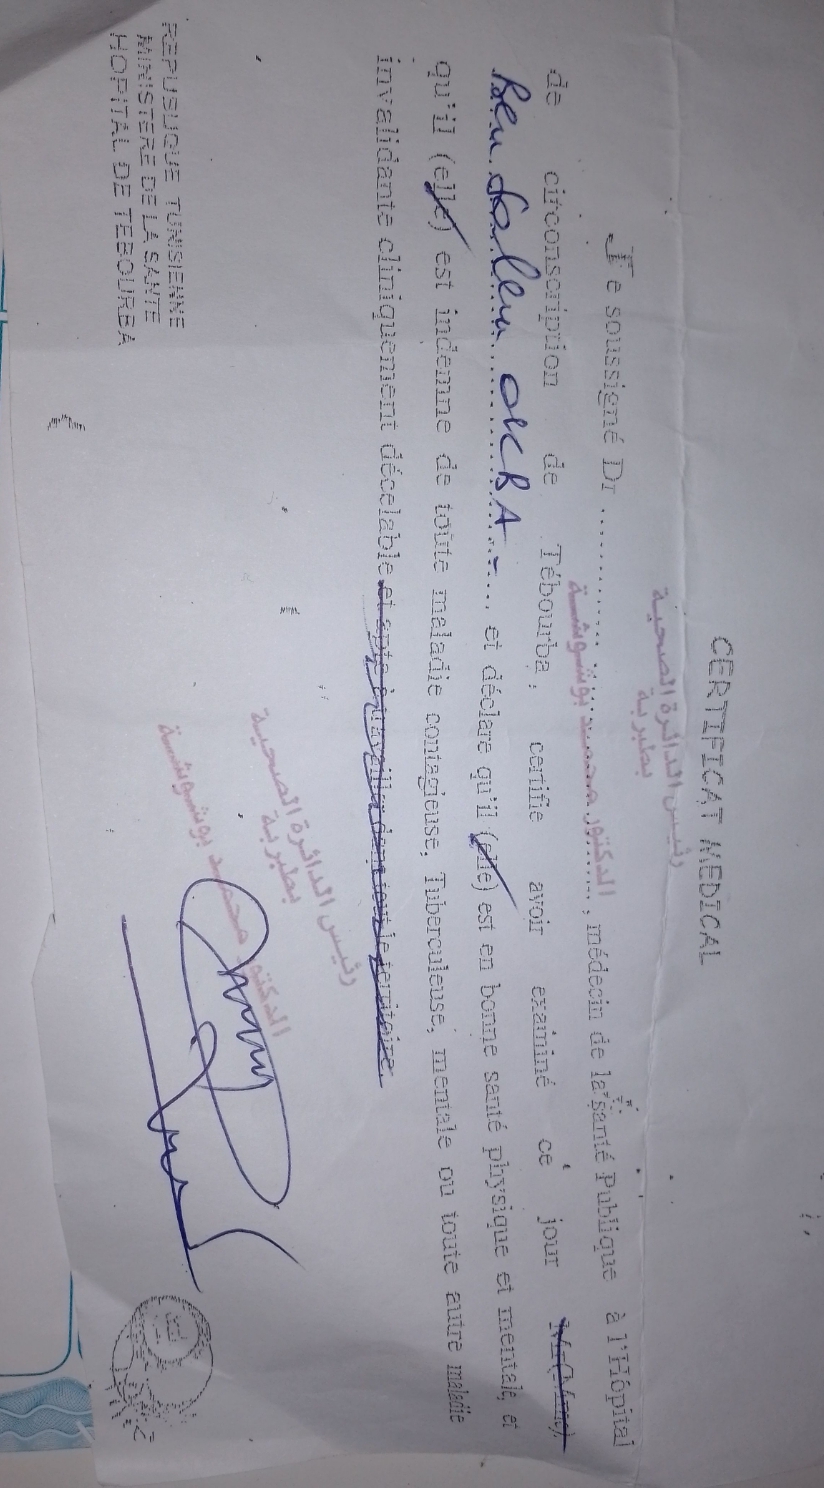 CERTIFICAT MEDICAL
رئيس الدائرة الصحية
بطبربة
الدكتور محمد بوشوشة
Je soussigné Dr ........................., médecin de la santé Publique à l'Hôpital
de circonscription de Tébourba, certifie avoir examiné ce jour Mr(Mme),
Ben Salem OKBA ...... et déclare qu'il (elle) est en bonne santé physique et mentale, et
qu'il (elle) est indemne de toute maladie contagieuse, Tuberculeuse, mentale ou toute autre maladie
invalidante cliniquement décelable et apte à travailler dans tout le territoire.
رئيس الدائرة الصحية
بطبربة
الدكتور محمد بوشوشة
REPUBLIQUE TUNISIENNE
MINISTERE DE LA SANTE
HOPITAL DE TEBOURBA